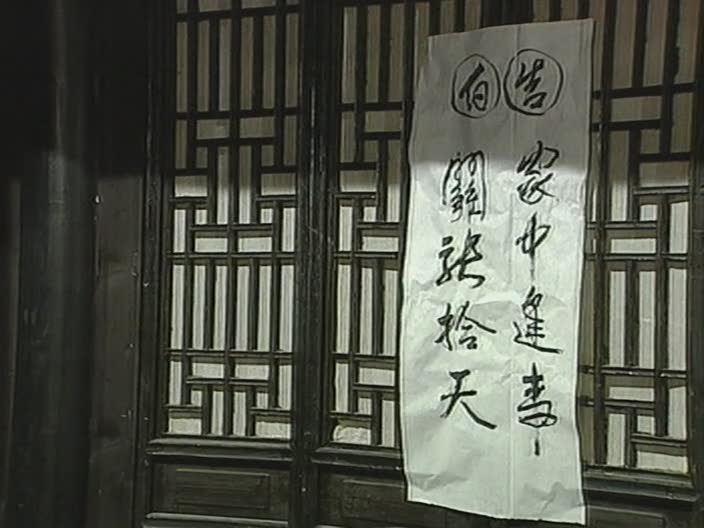 告 家中逢事
白 關張拾天